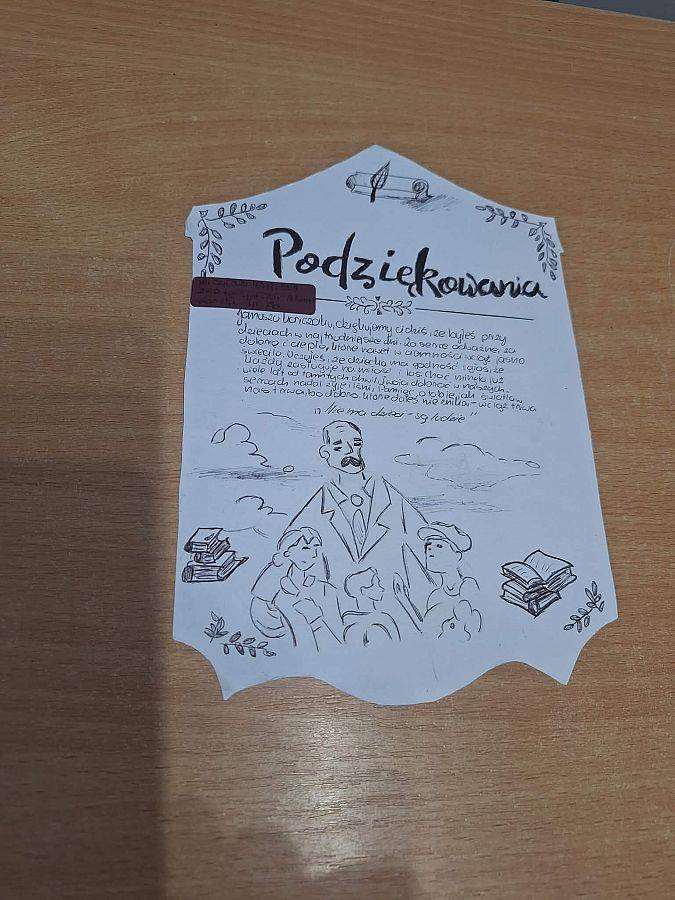 Podziękowania
Januszu Korczaku, dziękujemy ci dziś, że byłeś przy
dzieciach w najtrudniejsze dni. Za serce odważne, za
dobroć i ciepło, które nawet w ciemności wciąż jasno
świeciło. Uczyłeś, że dziecko ma godność i głos, że
każdy zasługuje na miłość i los. Choć minęło już
wiele lat od tamtych chwil, Twoja dobroć w naszych
sercach nadal żyje i lśni. Pamięć o tobie, jak światło w
nas trwa, bo dobro, które dałeś nie znika – wciąż trwa
"Nie ma dzieci – są ludzie"